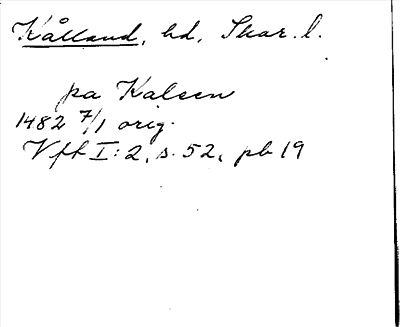 Kålland, hd, Skar. l.
pa Kaleen
1482 7/1 orig.
Vfh I:2, s. 52, pb 19